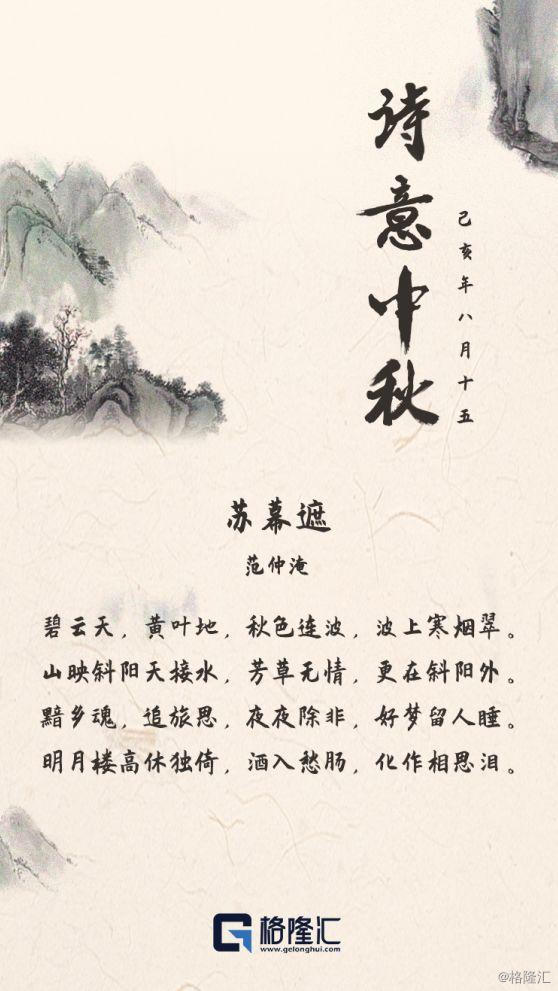 诗意中秋
己亥年八月十五
苏幕遮
范仲淹
碧云天，黄叶地，秋色连波，波上寒烟翠。
山映斜阳天接水，芳草无情，更在斜阳外。
黯乡魂，追旅思，夜夜除非，好梦留人睡。
明月楼高休独倚，酒入愁肠，化作相思泪。
格隆汇
www.gelonghui.com
@格隆汇